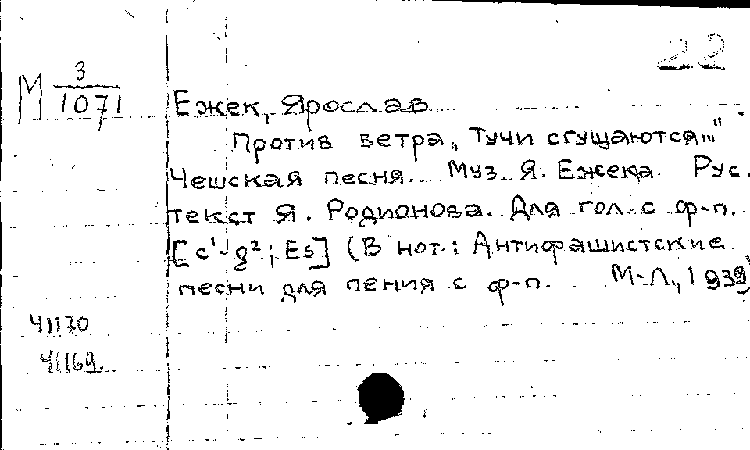 22
М 3/1071
Ежек, Ярослав
Против ветра „Тучи сгущаются..."
Чешская песня. Муз. Я. Ежека. Рус.
текст Я. Родионова. Для гол. с ф-п.
[c¹-g²; Es] (В нот.: Антифашистские
песни для пения с ф-п. М-Л., 1939)
41130
41169